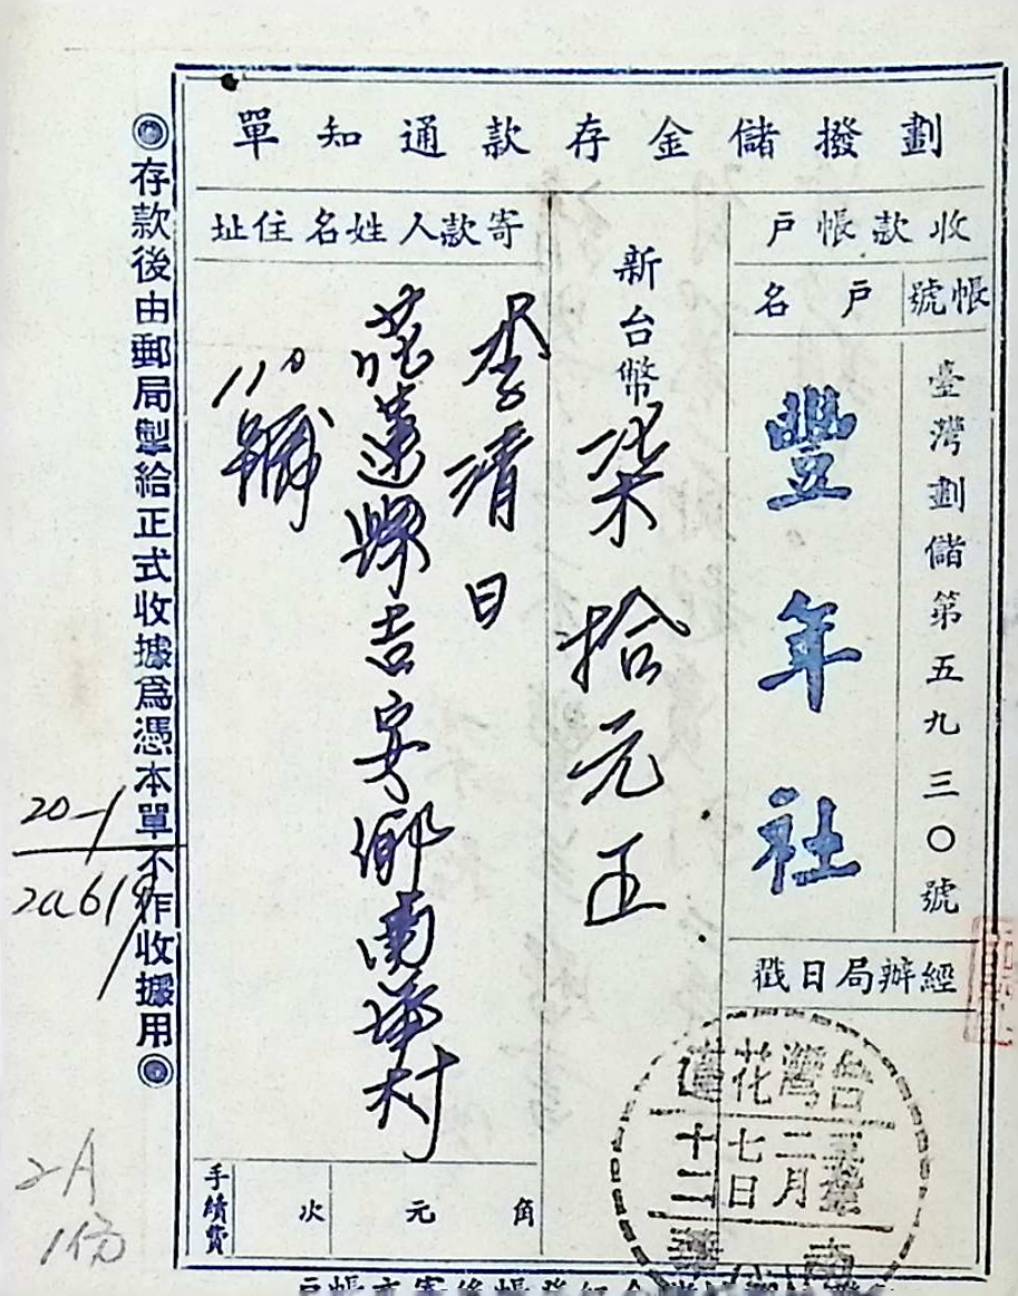 劃撥儲金存款通知單
收款帳戶
帳號
戶名
臺灣劃儲第五九三〇號
豐年社
經辦局日戳
台灣花蓮
二月
七日
十二
南華
新台幣柒拾元正
寄款人姓名住址
李清日
花蓮縣吉安鄉南華村
110號
手續費
次 元 角
◎存款後由郵局製給正式收據爲憑本單不作收據用◎
20-1
2A
1份